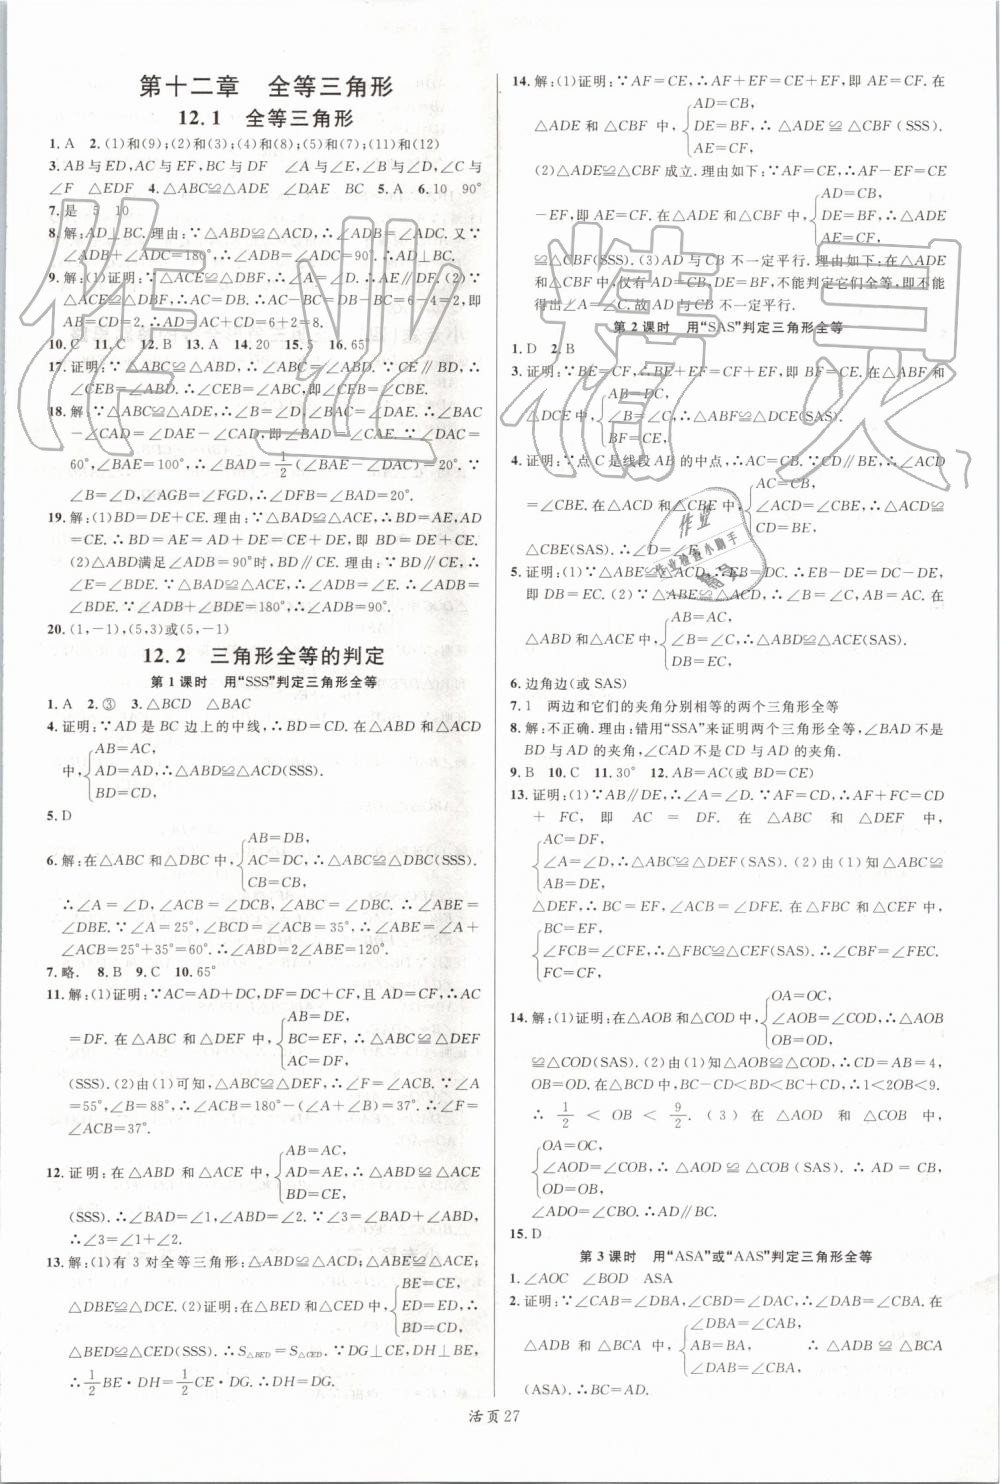 第十二章　全等三角形
12.1　全等三角形
1. A　2. (1)和(9);(2)和(3);(4)和(8);(5)和(7);(11)和(12)
3. AB与ED,AC与EF,BC与DF　∠A与∠E,∠B与∠D,∠C与
∠F　△EDF　4. △ABC≌△ADE　∠DAE　BC　5. A　6. 10　90°
7. 是　5　10
8. 解:AD⊥BC. 理由:∵△ABD≌△ACD,∴∠ADB=∠ADC. 又∵
∠ADB+∠ADC=180°,∴∠ADB=∠ADC=90°. ∴AD⊥BC.
9. 解:(1)证明:∵△ACE≌△DBF,∴∠A=∠D. ∴AE∥DF. (2)∵
△ACE≌△DBF,∴AC=DB. ∴AB=DC=AC-BC=6-4=2,即
AB=2. ∴AD=AC+CD=6+2=8.
10. C　11. C　12. B　13. A　14. 20　15. 5　16. 65°
17. 证明:∵△ABC≌△ABD,∴∠ABC=∠ABD. ∵CE∥BD,∴
∠CEB=∠ABD. ∴∠CEB=∠ABC,即∠CEB=∠CBE.
18. 解:∵△ABC≌△ADE,∴∠B=∠D,∠BAC=∠DAE. ∴∠BAC
-∠CAD=∠DAE-∠CAD,即∠BAD=∠CAE. ∵∠DAC=
60°,∠BAE=100°,∴∠BAD=1/2(∠BAE-∠DAC)=20°. ∵
∠B=∠D,∠AGB=∠FGD,∴∠DFB=∠BAD=20°.
19. 解:(1)BD=DE+CE. 理由:∵△BAD≌△ACE,∴BD=AE,AD
=CE. ∴BD=AE=AD+DE=CE+DE,即BD=DE+CE.
(2)△ABD满足∠ADB=90°时,BD∥CE. 理由:∵BD∥CE,∴
∠E=∠BDE. ∵△BAD≌△ACE,∴∠ADB=∠E. ∴∠ADB=
∠BDE. ∵∠ADB+∠BDE=180°,∴∠ADB=90°.
20. (1,-1),(5,3)或(5,-1)
12.2　三角形全等的判定
第1课时　用“SSS”判定三角形全等
1. A　2. ③　3. △BCD　△BAC
4. 证明:∵AD是BC边上的中线,∴BD=CD. 在△ABD和△ACD
AB=AC,
中,{AD=AD,∴△ABD≌△ACD(SSS).
BD=CD,
5. D
AB=DB,
6. 解:在△ABC和△DBC中,{AC=DC,∴△ABC≌△DBC(SSS).
CB=CB,
∴∠A=∠D,∠ACB=∠DCB,∠ABC=∠DBC. ∴∠ABE=
∠DBE. ∵∠A=25°,∠BCD=∠ACB=35°,∴∠ABE=∠A+
∠ACB=25°+35°=60°. ∴∠ABD=2∠ABE=120°.
7. 略.　8. B　9. C　10. 65°
11. 解:(1)证明:∵AC=AD+DC,DF=DC+CF,且AD=CF,∴AC
AB=DE,
=DF. 在△ABC和△DEF中,{BC=EF,∴△ABC≌△DEF
AC=DF,
(SSS). (2)由(1)可知,△ABC≌△DEF,∴∠F=∠ACB. ∵∠A
=55°,∠B=88°,∴∠ACB=180°-(∠A+∠B)=37°. ∴∠F=
∠ACB=37°.
AB=AC,
12. 证明:在△ABD和△ACE中,{AD=AE,∴△ABD≌△ACE
BD=CE,
(SSS). ∴∠BAD=∠1,∠ABD=∠2. ∵∠3=∠BAD+∠ABD,
∴∠3=∠1+∠2.
13. 解:(1)有3对全等三角形:△ABD≌△ACD;△ABE≌△ACE;
BE=CE,
△DBE≌△DCE. (2)证明:在△BED和△CED中,{ED=ED,∴
DB=DC,
△BED≌△CED(SSS). ∴S△BED=S△CED. ∵DG⊥CE,DH⊥BE,
∴1/2BE·DH=1/2CE·DG. ∴DH=DG.
14. 解:(1)证明:∵AF=CE,∴AF+EF=CE+EF,即AE=CF. 在
AD=CB,
△ADE和△CBF中,{DE=BF,∴△ADE≌△CBF(SSS).
AE=CF,
(2)△ADE≌△CBF成立. 理由如下:∵AF=CE,∴AF-EF=CE
AD=CB,
-EF,即AE=CF. 在△ADE和△CBF中,{DE=BF,∴△ADE
AE=CF,
≌△CBF(SSS). (3)AD与CB不一定平行. 理由如下:在△ADE
和△CBF中,仅有AD=CB,DE=BF,不能判定它们全等,即不能
得出∠A=∠C. 故AD与CB不一定平行.
第2课时　用“SAS”判定三角形全等
1. D　2. B
3. 证明:∵BE=CF,∴BE+EF=CF+EF,即BF=CE. 在△ABF和
AB=DC,
△DCE中,{∠B=∠C,∴△ABF≌△DCE(SAS).
BF=CE,
4. 证明:∵点C是线段AB的中点,∴AC=CB. ∵CD∥BE,∴∠ACD
AC=CB,
=∠CBE. 在△ACD和△CBE中,{∠ACD=∠CBE,∴△ACD≌
CD=BE,
△CBE(SAS). ∴∠D=∠E.
5. 证明:(1)∵△ABE≌△ACD,∴EB=DC. ∴EB-DE=DC-DE,
即DB=EC. (2)∵△ABE≌△ACD,∴AB=AC,∠B=∠C. 在
AB=AC,
△ABD和△ACE中,{∠B=∠C,∴△ABD≌△ACE(SAS).
DB=EC,
6. 边角边(或SAS)
7. 1　两边和它们的夹角分别相等的两个三角形全等
8. 解:不正确. 理由:错用“SSA”来证明两个三角形全等,∠BAD不是
BD与AD的夹角,∠CAD不是CD与AD的夹角.
9. B　10. C　11. 30°　12. AB=AC(或BD=CE)
13. 证明:(1)∵AB∥DE,∴∠A=∠D. ∵AF=CD,∴AF+FC=CD
+FC,即AC=DF. 在△ABC和△DEF中,
AC=DF,
{∠A=∠D,∴△ABC≌△DEF(SAS). (2)由(1)知△ABC≌
AB=DE,
△DEF,∴BC=EF,∠ACB=∠DFE. 在△FBC和△CEF中,
BC=EF,
{∠FCB=∠CFE,∴△FBC≌△CEF(SAS). ∴∠CBF=∠FEC.
FC=CF,
OA=OC,
14. 解:(1)证明:在△AOB和△COD中,{∠AOB=∠COD,∴△AOB
OB=OD,
≌△COD(SAS). (2)由(1)知△AOB≌△COD,∴CD=AB=4,
OB=OD. 在△BCD中,BC-CD<BD<BC+CD,∴1<2OB<9.
∴1/2<OB<9/2. (3)在△AOD和△COB中,
OA=OC,
{∠AOD=∠COB,∴△AOD≌△COB(SAS). ∴AD=CB,
OD=OB,
∠ADO=∠CBO. ∴AD∥BC.
15. D
第3课时　用“ASA”或“AAS”判定三角形全等
1. ∠AOC　∠BOD　ASA
2. 证明:∵∠CAB=∠DBA,∠CBD=∠DAC,∴∠DAB=∠CBA. 在
∠DBA=∠CAB,
△ADB和△BCA中,{AB=BA,∴△ADB≌△BCA
∠DAB=∠CBA,
(ASA). ∴BC=AD.
活页27
作业精灵
作业
作业检查小助手